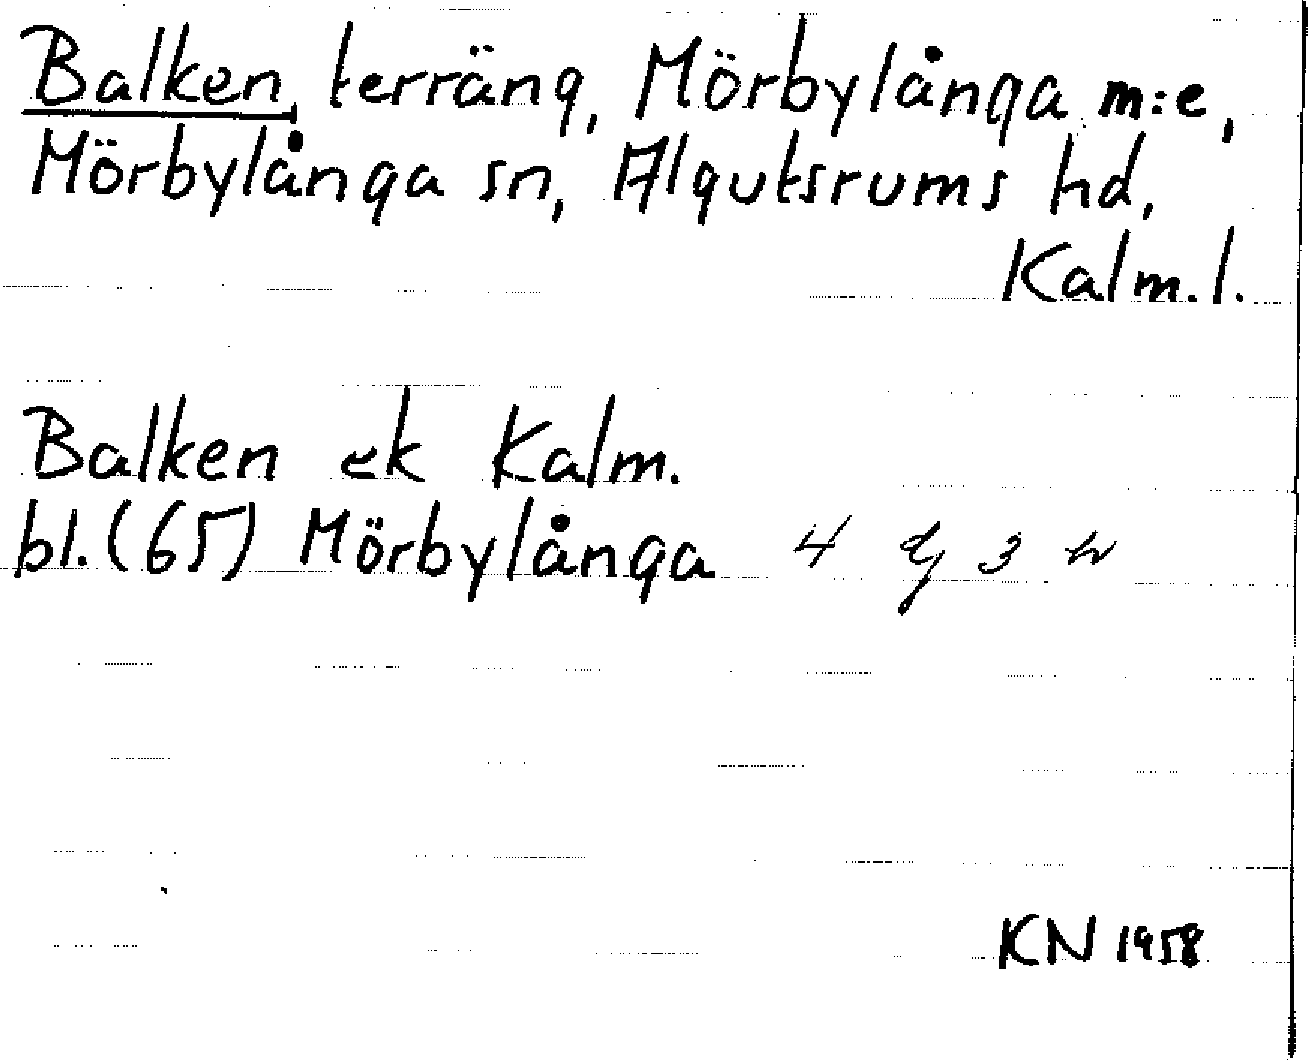 Balken, terräng, Mörbylånga m:e,
Mörbylånga sn, Algutsrums hd,
Kalm. l.
Balken ek Kalm.
bl. (65) Mörbylånga 4 g 3 w
KN 1958